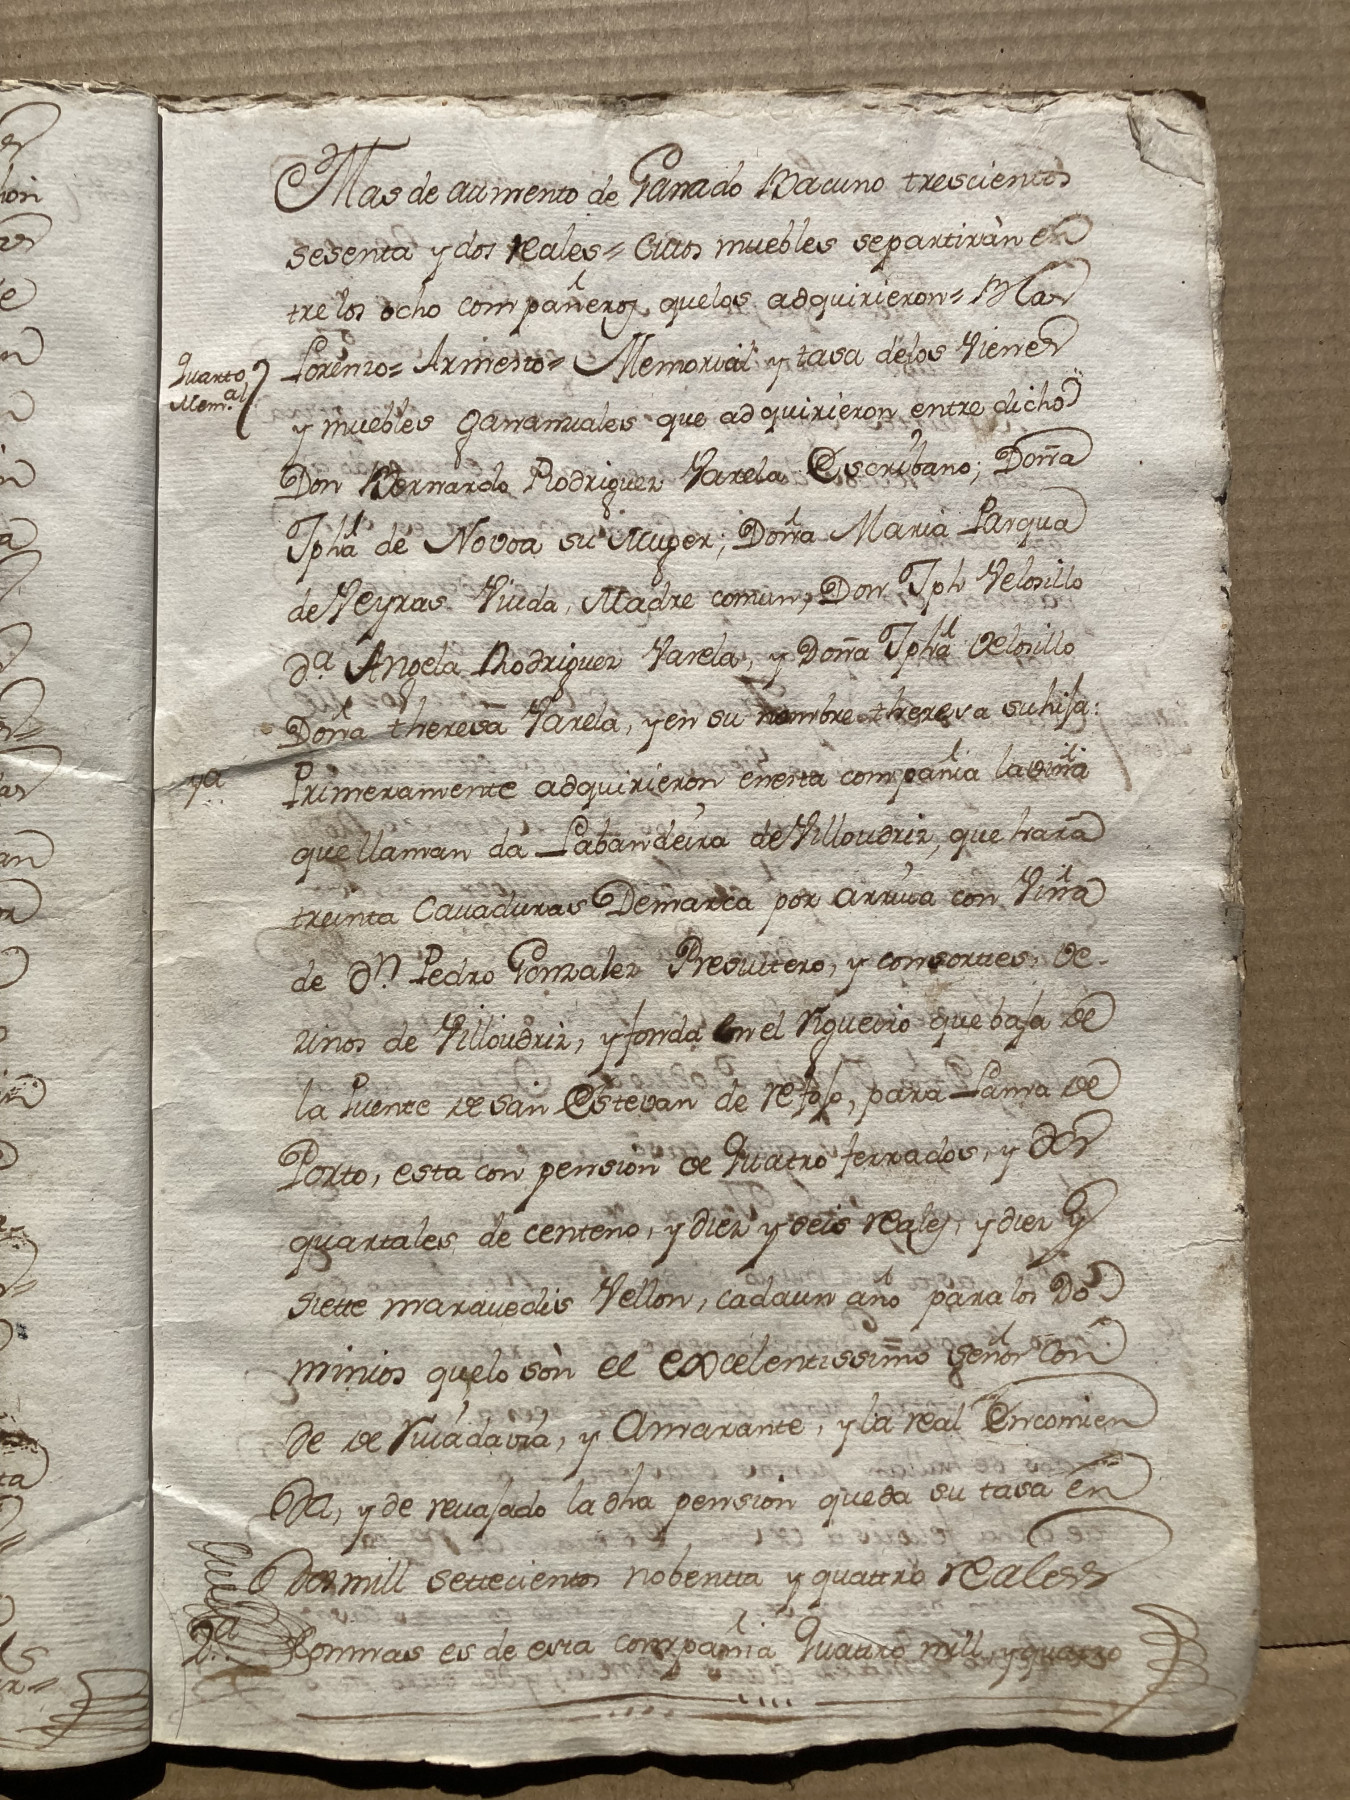 Mas de aumento de Ganado Bacuno trescientos
sesenta y dos reales = Cuios muebles separtiràn en
tre los ocho compañeros, quelos adquirieron = Blas
Lorenzo = Armesto = Memorial y tasa delos Vienes
Quarto
Mem.al
y muebles gananziales que adquirieron entre dichos
Don Bernardo Rodriguez Varela Escribano; Doña
Jpha de Novoa su Muger; Doña Maria
de Veyras Viuda, Madre comun, Don Jph Velosillo
d.a Angela Rodriguez Varela, y Doña Jpha Velosillo
Doña theresa Varela, y en su nombre theresa su hija:
Primeramente adquirieron enesta compañia la viña
que llaman da Labandeira de Villoudriz, que hara
treinta Cauaduras Demarca por arriua con Viña
de D.n Pedro Gonzalez Presuitero, y consortes, ve-
zinos de Villoudriz, y fonda en el Rigueiro que baja de
la Puente de san Estevan de, para Lama de
Porto, esta con pension de Quatro ferrados, y dos
quartales de centeno, y diez y seis reales, y diez y
siette marauedis Vellon, cadaun año para los Do
minios quelo sòn el excelentissimo señor Con
de de Riuadavia, y Amarante, y la real Encomien
da, y de reuajado la dha pension queda su tasa en
dos mill settecientos nobentta y quattro reales
2.a Yommas es de esta compañia Quattro mill, y quatro